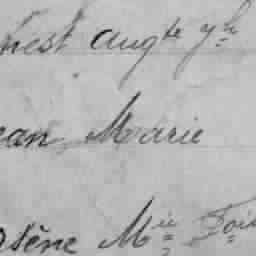 nest Aug.te
ean Marie
rsène M.ie